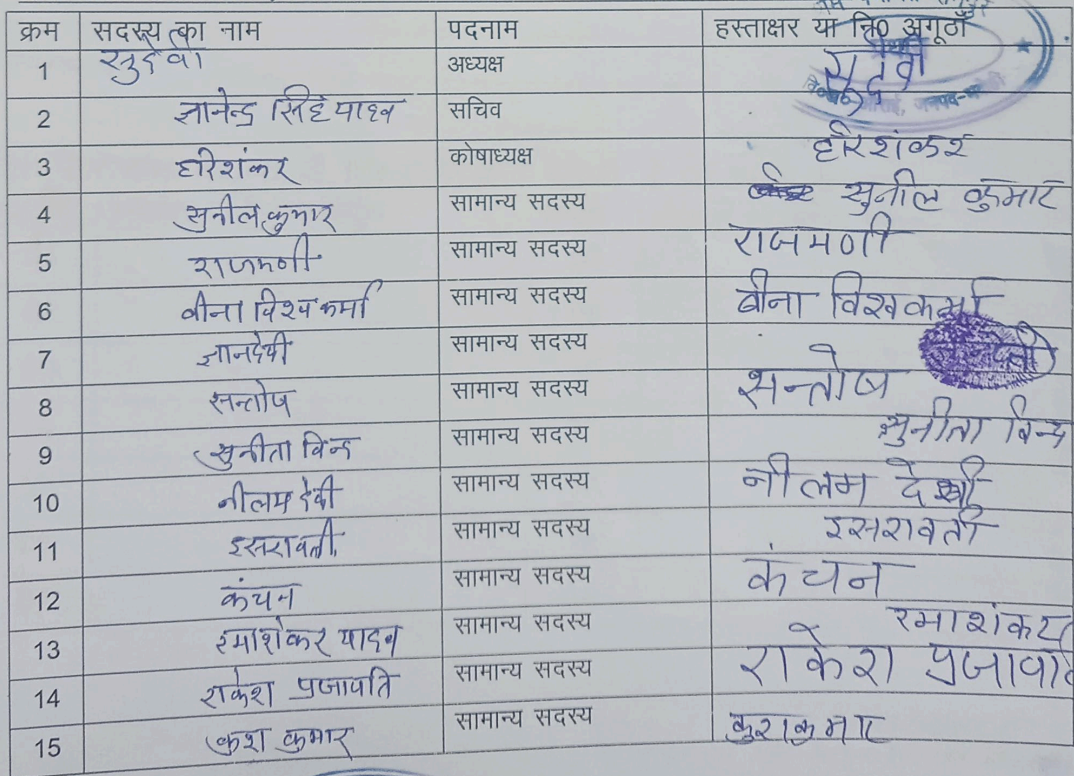 क्रम सदस्य का नाम पदनाम हस्ताक्षर या नि0 अगूठाँ
1 सुदेवी अध्यक्ष सुदेवी
2 ज्ञानेन्द्र सिंह यादव सचिव
3 हरिशंकर कोषाध्यक्ष हरिशंकर
4 सुनील कुमार सामान्य सदस्य सुनील कुमार
5 राजमणी सामान्य सदस्य राजमणी
6 वीना विश्वकर्मा सामान्य सदस्य बीना विश्वकर्मा
7 ज्ञानदेवी सामान्य सदस्य
8 सन्तोष सामान्य सदस्य सन्तोष
9 सुनीता विन्द सामान्य सदस्य सुनीता विन्द
10 नीलम देवी सामान्य सदस्य नीलम देवी
11 इसरावती सामान्य सदस्य इसरावती
12 कंचन सामान्य सदस्य कंचन
13 रमाशंकर यादव सामान्य सदस्य रमाशंकर
14 राकेश प्रजापति सामान्य सदस्य राकेश प्रजापति
15 कुश कुमार सामान्य सदस्य कुश कुमार